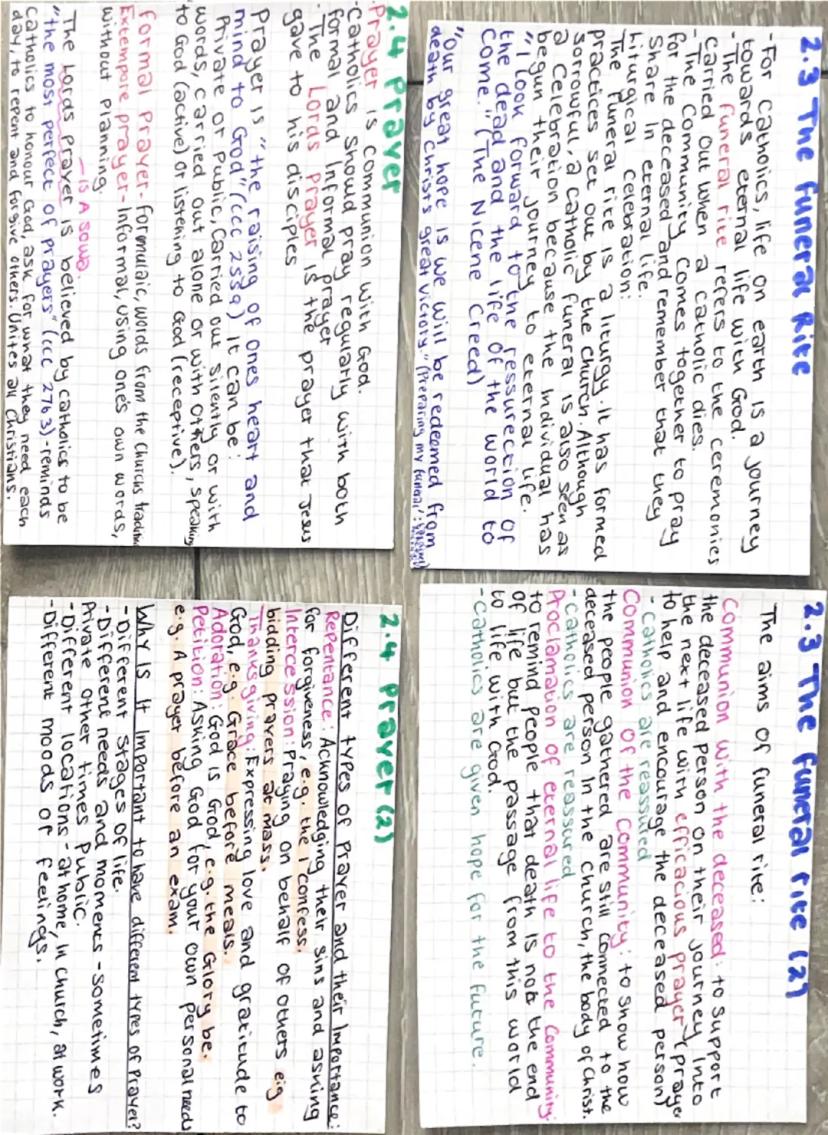 2.3 The funeral Rite
-For catholics, life on earth is a journey
towards eternal life with God.
-The funeral rite refers to the ceremonies
carried out when a catholic dies.
-The community comes together to pray
for the deceased and remember that they
share in eternal life.
Liturgical celebration:
The funeral rite is a liturgy. It has formed
practices set out by the church. Although
sorrowful, a catholic funeral is also seen as
a celebration because the individual has
begun their journey to eternal life.
"I look forward to the ressurection of
the dead and the life of the world to
come." (The Nicene Creed)
"Our great hope is we will be redeemed from
death by Christs great victory." (Preparing my funeral:
2.3 The funeral rite (2)
The aims of funeral rite:
Communion with the deceased: to support
the deceased person on their journey into
the next life with efficacious prayer (prayer
to help and encourage the deceased person)
-catholics are reassured
Communion of the community: to show how
the people gathered are still connected to the
deceased person in the church, the body of Christ.
-catholics are reassured
Proclamation of eternal life to the community:
to remind people that death is not the end
of life but the passage from this world
to life with God.
-catholics are given hope for the future.
2.4 Prayer
-Prayer is communion with God.
-Catholics should pray regularly with both
formal and informal prayer
-The Lords prayer is the prayer that Jesus
gave to his disciples
Prayer is "the raising of ones heart and
mind to God" (CCC 2559) It can be:
Private or Public, carried out silently or with
words, carried out alone or with others, speaking
to God (active) or listening to God (receptive).
formal Prayer- formulaic, words from the Churchs tradition
Extempore prayer- informal, using one's own words,
without planning.
- IS A SOWA.
The Lords prayer is believed by catholics to be
"the most perfect of prayers" (CCC 2763). reminds
catholics to honour God, ask for what they need each
day, to repent and forgive others. Unites all Christians.
2.4 Prayer (2)
Different types of Prayer and their Importance:
Repentance: Acknowledging their sins and asking
for forgiveness, e.g. the I confess.
Intercession: Praying on behalf of others e.g
bidding prayers at mass.
Thanksgiving: Expressing love and gratitude to
God, e.g. Grace before meals.
Adoration: God is God e.g. the Glory be.
Petition: Asking God for your own personal needs
e.g. A prayer before an exam.
Why is it important to have different types of Prayer?
-Different stages of life.
-Different needs and moments - sometimes
Private other times Public.
-Different locations - at home, in church, at work.
-Different moods of feelings.